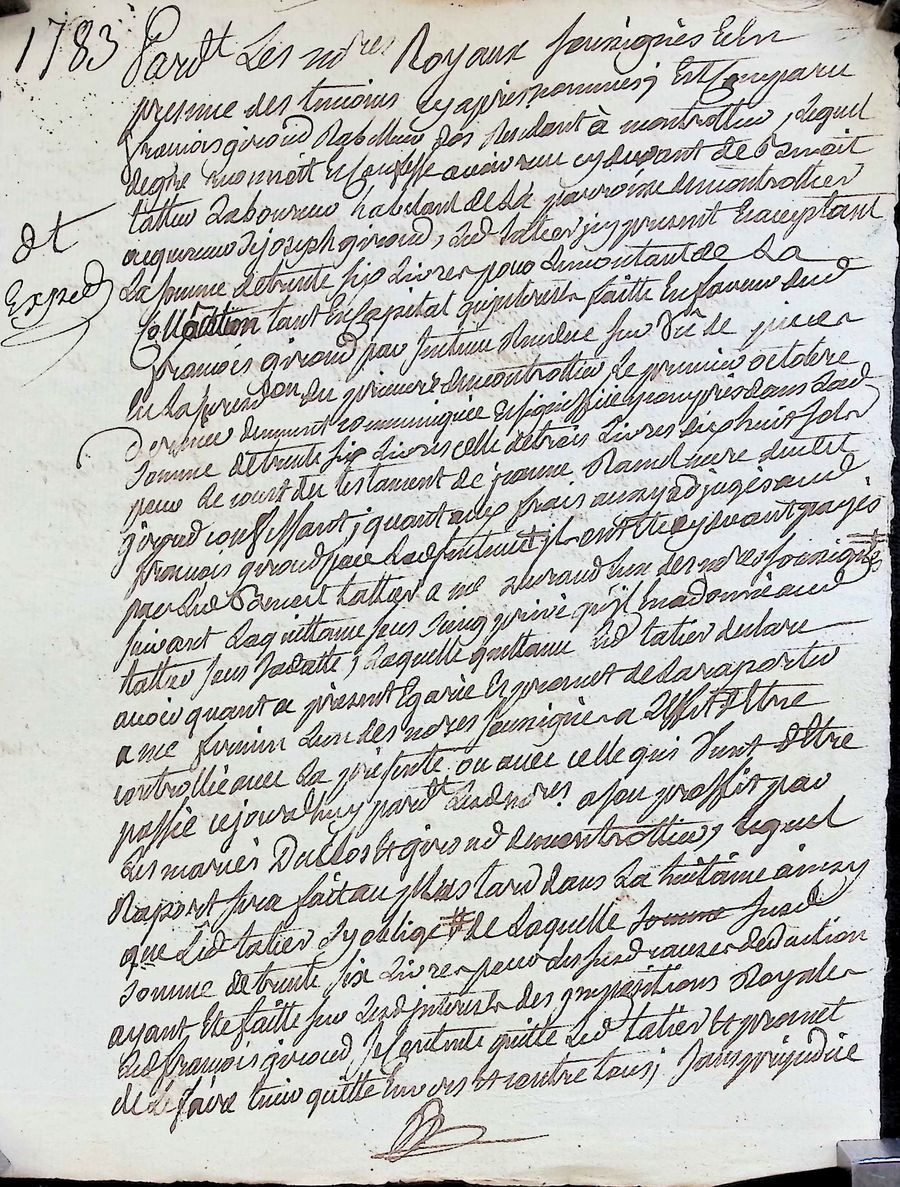 1783
Pardt Les nores Royaux soussignés Et En
presence des temoins cy apres nommés, Est Comparu
francois giroud habitant a montrottier, Lequel
de gre reconnoit Et Confesse avoir recu cy devant de benoit
tattier Laboureur habitant de la parroisse de montrottier
acquereur de joseph giroud, Led. tatier icy present Et acceptant
dt
Exped
La somme de trente six Livres pour Le montant de La
Collocation tant En Capital qu'interets faitte En faveur dud
francois giroud par sentence Rendue sur
En La jurisdon du prieuré de montrottier Le premier octobre
dernier dument communiquée Et signiffiée y compris dans Lad
somme de trente six Livres celle de trois Livres dix huit sols
pour le court du testament de jeanne mere dudit
giroud confessant, quant aux frais aussy adjugés aud
francois giroud par Lad sentence ils ont été cy devant payés
par Led Benoit tattier a me Lun des nores soussignés
suivant La quittance sous seing privé qu'il En a donnée aud
tattier sous sa datte, Laquelle quittance Led tatier declare
avoir quant a present Egarée Et promet de La raporter
a me Lun des nores soussignés a Leffet d'Etre
controllée avec La presente ou avec celle qui vient d'Etre
passée cejourdhuy pardt Lesd nores a son proffit par
Les mariés Duclos Et giroud de montrottier, Lequel
Raport sera fait au plus tard dans La huitaine ainsy
que Led tatier sy oblige # de Laquelle somme susd
somme de trente six Livres pour les susd causes deduction
ayant Eté faitte sur Lesd interets des impositions Royales
Led francois giroud se Contente quitte Led tatier Et promet
de Le faire tenir quitte Envers Et contre tous, sans prejudice